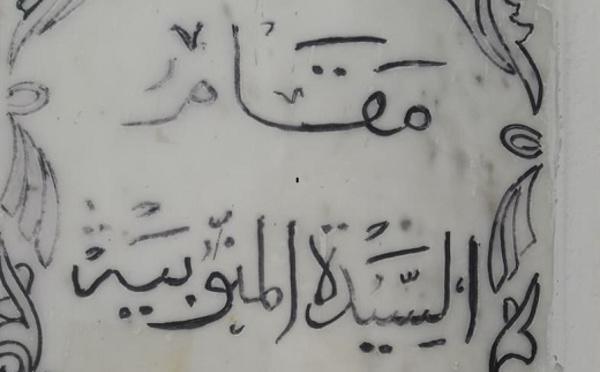 مقام
السيدة المنوبية